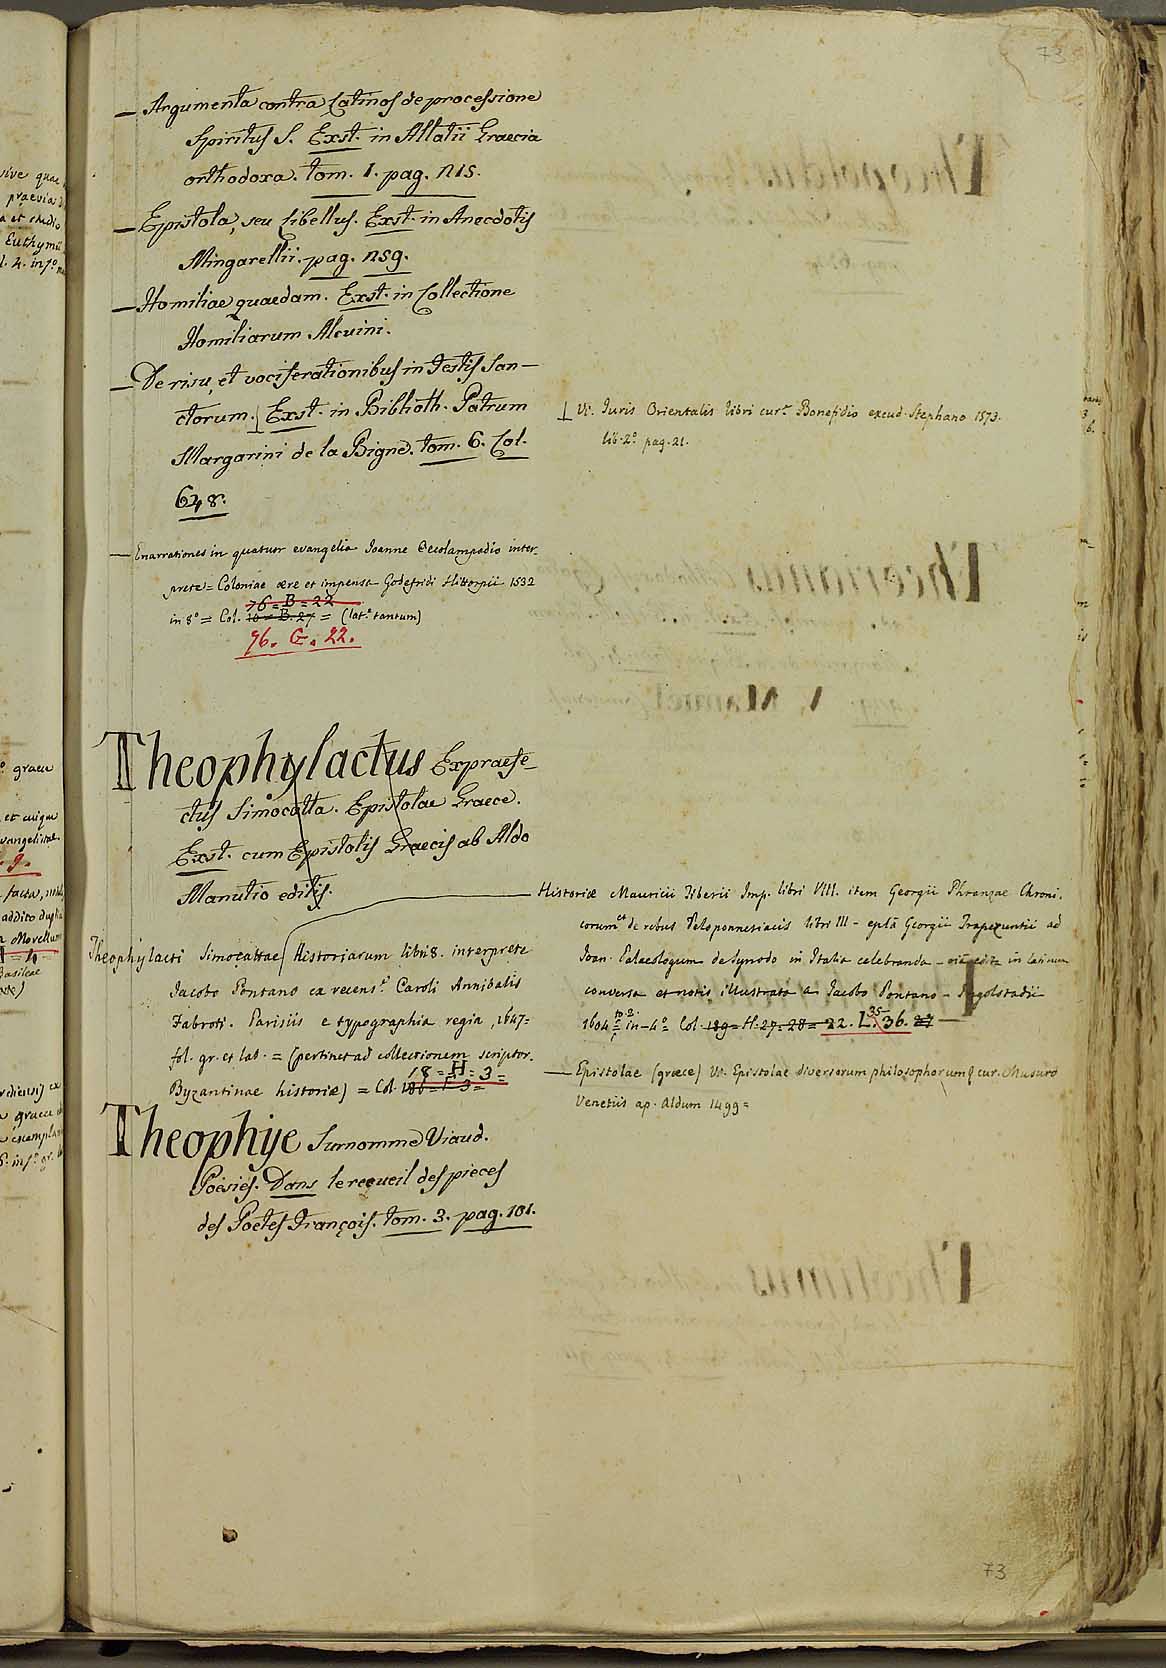 73
— Argumenta contra Latinos de processione
Spiritus S. Exst. in Allatii Graecia
orthodoxa. tom. 1. pag.
— Epistola, seu Libellus. Exst. in Anecdotis
Mingarellii. pag.
— Homiliae quaedam. Exst. in Collectione
Homiliarum Alcuini.
— De risu, et vociferationibus in Festis San-
ctorum. Exst. in Biblioth. Patrum
Margarini de la Bigne. tom. 6. Col.
648.
V. Juris Orientalis libri cur.e Bonefidio excud. Stephano 1573.
lib. 2.º pag. 21.
— Enarrationes in quatuor evangelia Joanne Oecolampadio inter-
prete = Coloniae aere et impensa Godefridi Hittorpii 1532
76 = B = 22
in 8º = Col. 10 = B. 27 = (lat.e tantum)
76. G. 22.
Theophylactus Expraefe-
ctus Simocatta. Epistolae Graece.
Exst. cum Epistolis Graecis ab Aldo
Manutio editis.
Theophylacti Simocattae Historiarum libri 8. interprete
Jacobo Pontano ex recens.e Caroli Annibalis
Fabroti. Parisiis e typographia regia, 1647 =
fol. gr. et lat. = (pertinet ad collectionem scriptor.
18 = H = 3 =
Byzantinae historiae) = Col.
— Historiae Mauricii Tiberii Imp. libri VIII. item Georgii Phranzae Chroni.
corum et de rebus Peloponnesiacis libri III - epla Georgii Trapezuntii ad
Joan. Palaeologum de Synodo in Italia celebranda - edita in latinum
conversa et notis illustrata a Jacobo Pontano - Ingolstadii
1604 = to. 2. in-4º = Col. 189 = H. 27. 28 = 22. L. 35 36. 27 —
— Epistolae (graece) V. Epistolae diversorum philosophorum cur. Musuro
Venetiis ap. Aldum 1499 =
Theophije Surnommé Viaud.
Poesies. Dans le recueil des pieces
des Poetes François. tom. 3. pag. 101.
73